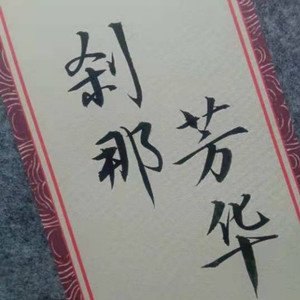 刹那
芳华